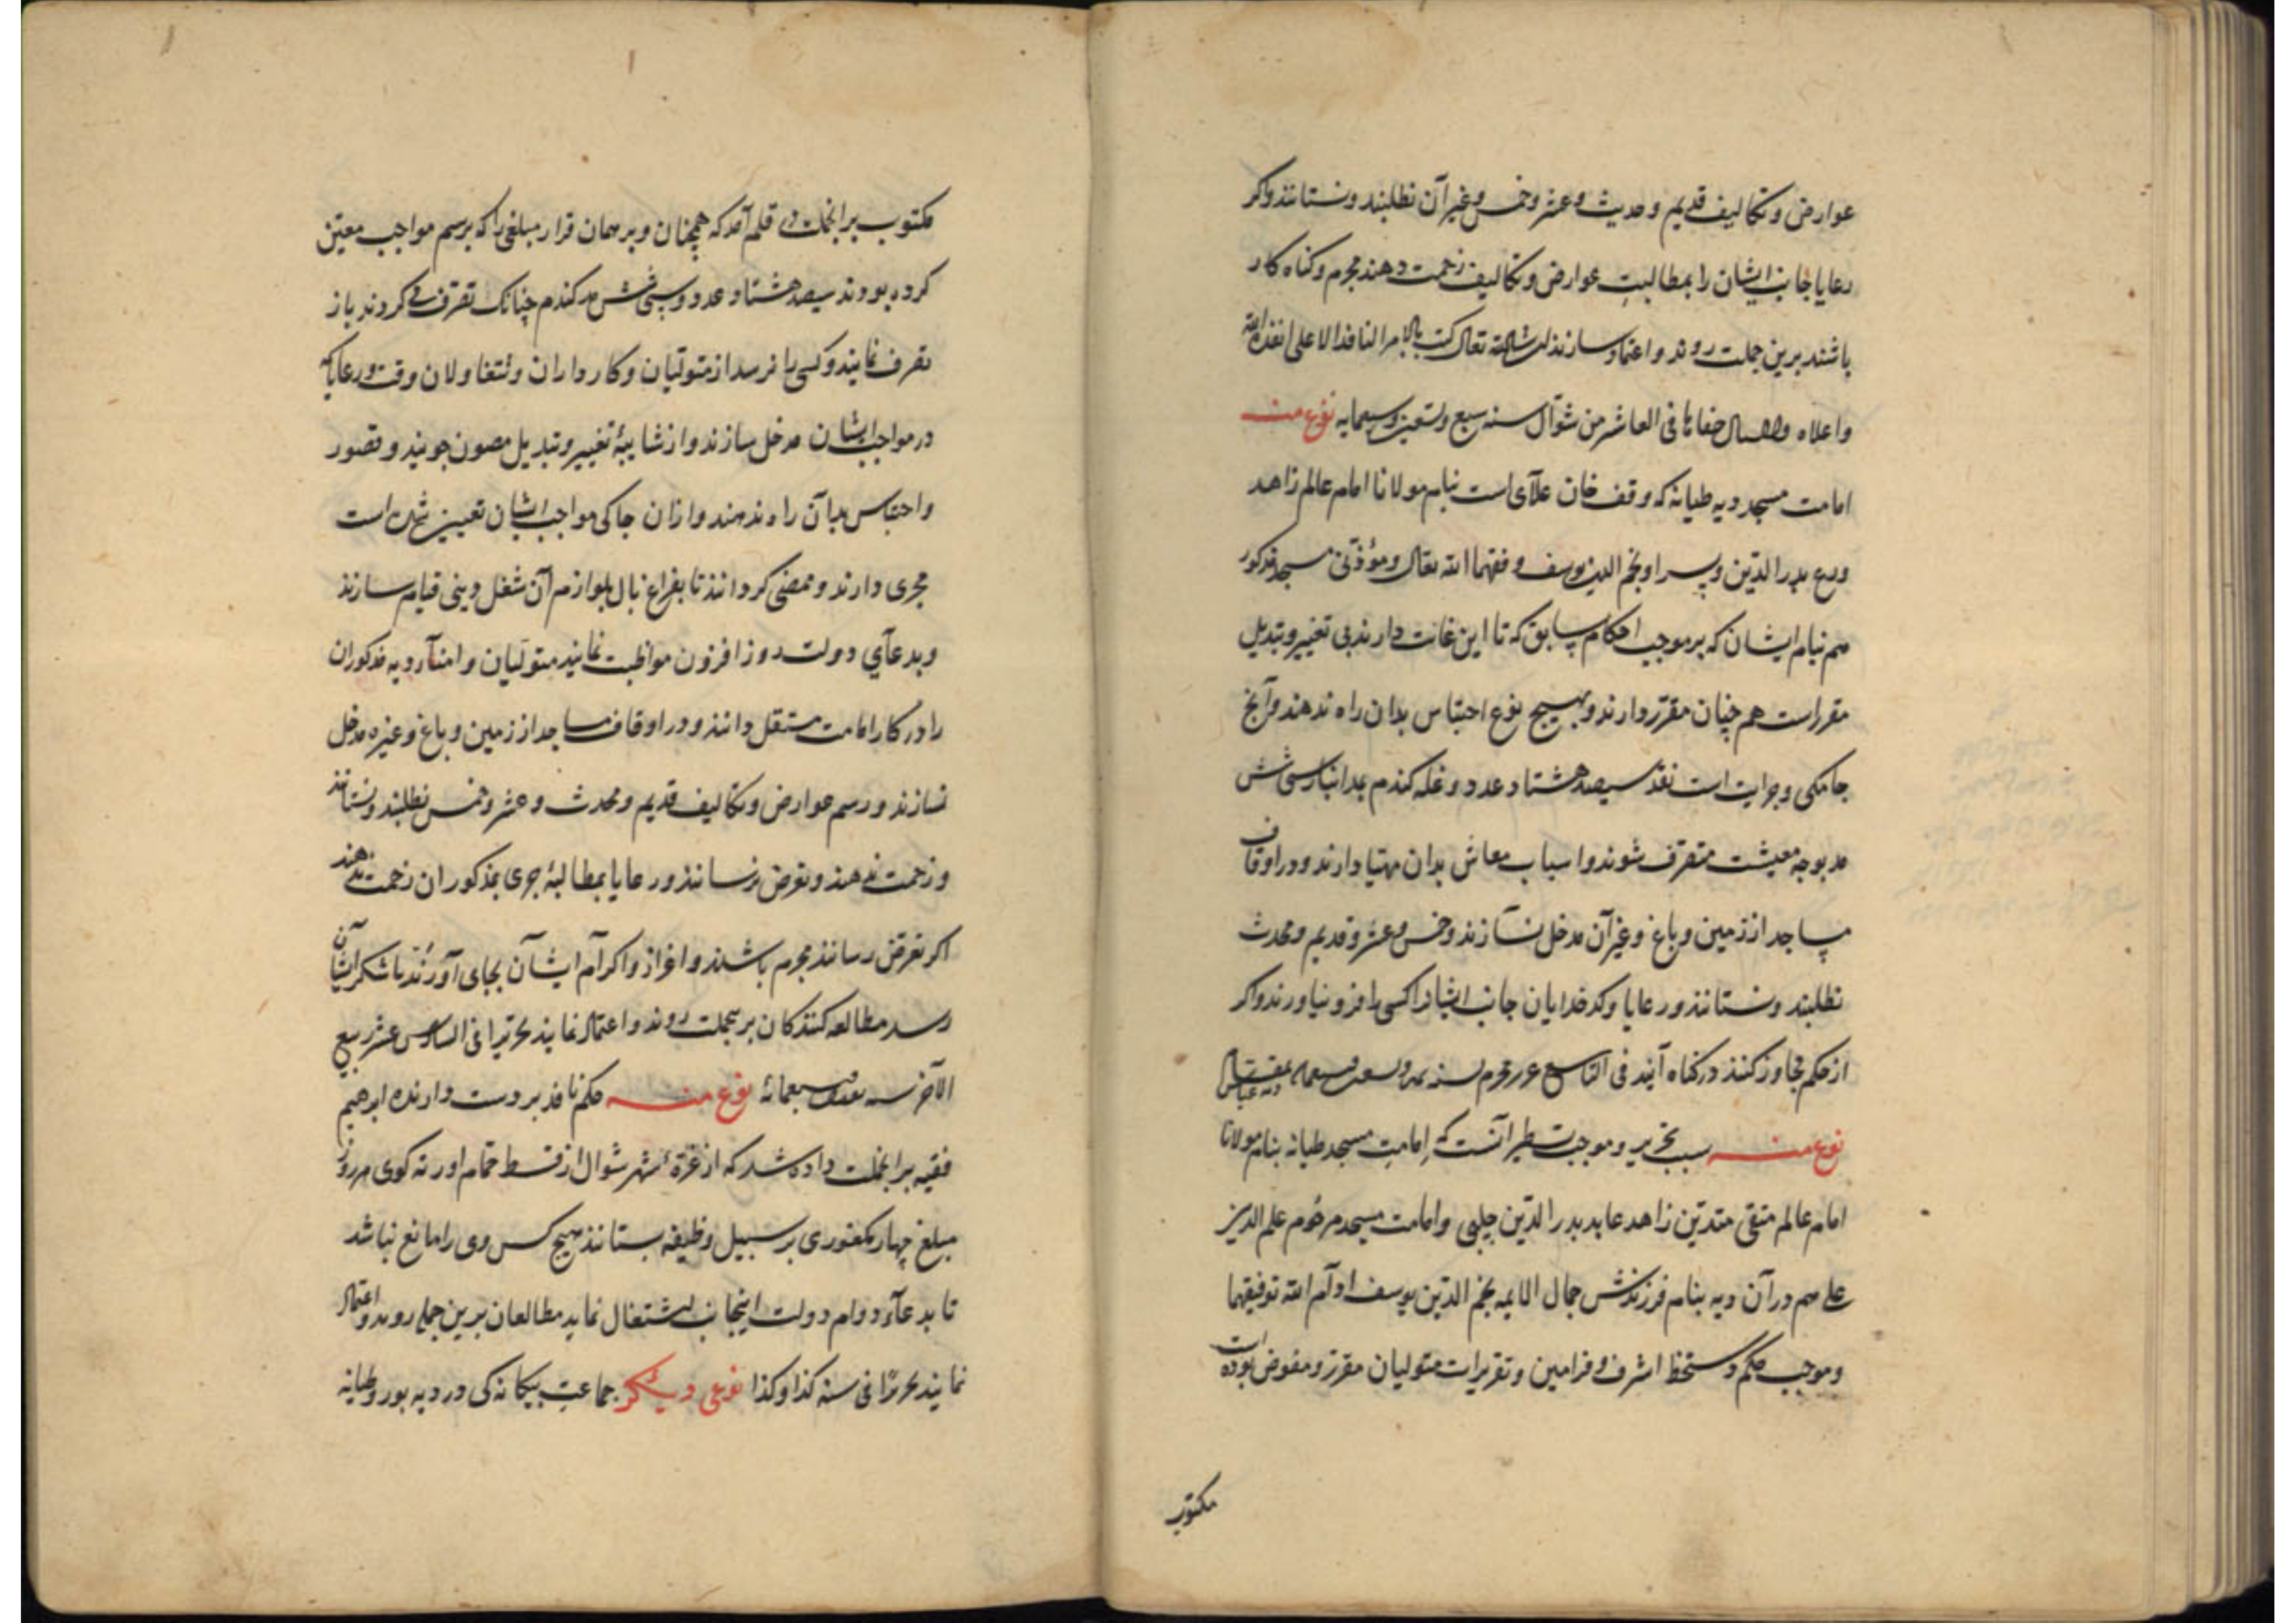 عوارض و تکالیف قدیم و حدیث و عشر و خمس و غیر آن نطلبند و نستانند و اکر
رعایا جانب ایشان را بمطالبتِ عوارض و تکالیف زحمت دهند مجرم و کناه کار
باشند برین جملت روند و اعتماد سازند ان شاء الله تعالی کتب بالامر النافذ الاعلی انفذه الله
و اعلاه فی العاشر من شوّال سنه سبع و تسعین و سبعمایه نوع منه
امامت مسجد دیه طیانه که وقف خان علآی است بنام مولانا امام عالم زاهد
ورع بدر الدّین و پسر او نجم الدین یوسف وفقهما الله تعالی و مؤذّنی مسجد مذکور
هم بنام ایشان که بر موجب احکام سابق که تا این غایت دارند بی تغییر و تبدیل
مقرر است هم چنان مقرّر دارند و بهیچ نوع احتباس بدان راه ندهند و آنچ
جامکی و جرایت است نقد سیصد هشتاد عدد و غله کندم بدانبار سی شش
مد بوجه معیشت متصرّف شوند و اسباب معاش بدان مهیّا دارند و در اوقاف
مساجد از زمین و باغ و غیر آن مدخل نسازند و خمس و عشر و قدیم و محدث
نطلبند و نستانند و رعایا و کدخدایان جانب ایشانرا کسی را فرو نیاورند و اکر
از حکم تجاوز کنند در کناه آیند فی التاسع محرم سنه
نوع منه سبب تحریر و موجب تسطیر آنست که اِمامتِ مسجد طیانه بنام مولانا
امام عالم متقی متدیّن زاهد عابد بدر الدّین چلبی و امامت مسجد مرحوم علم الدین
علی هم در آن دیه بنام فرزندش جمال الایمه نجم الدّین یوسف ادام الله توفیقهما
و موجب حکم دستخط اشرف و فرامین و تقریرات متولیان مقرر و مفوض بوده است
مکتوب
مکتوب بر انجملت در قلم آمد که همچنان و بر همان قرار مبلغی را که برسم مواجب معیّن
کرده بودند سیصد هشتاد عدد و سی شش مد کندم چنانک تصرّف می کردند باز
تصرف نمایند و کسی را نرسد از متولّیان و کارداران و متغاولان وقت و رعایا که
در مواجب ایشان مدخل سازند و از شایبهٔ تغییر و تبدیل مصون جویند و قصور
و احتباس بدان راه ندهند و از ان جا کی مواجب ایشان تعیین شده است
مجری دارند و ممضی کردانند تا بفراغ بال بلوازم آن شغل دینی قیام سازند
و بدعآی دولت روز افزون مواظبت نمایند متولّیان و امنآء دیه مذکوران
را در کار امامت مستقل دانند و در اوقاف مساجد از زمین و باغ و غیره مدخل
نسازند و رسم عوارض و تکالیف قدیم و محدث و عشر و خمس نطلبند و نستانند
و زحمت ندهند و تعرض نرسانند و رعایا بمطالبهٔ جری مذکوران زحمت ندهند
اکر تعرض رسانند مجرم باشند و اعزاز و اکرام ایشان بجای آورند تا شکر ایشان
رسد مطالعه کنندکان بر نجملت روند و اعتماد نمایند تحریرا فی السادس عشر ربیع
الآخر سنه و سبعمائة نوع منه حکم نافذ بر دست دارنده ابرهیم
فقیه بر انجملت داده شد که از غرّهٔ شهر شوال از قسط حمّام اورته کوی هر روز
مبلغ چهار یکفوری بر سبیل وظیفه بستانند هیچ کس وی را مانع نباشد
تا بدعآء دوام دولت اینجانب اشتغال نماید مطالعان برین جمله روند و اعتماد
نمایند تحریرًا فی سنه کذا و کذا نوعی دیکر جماعتِ بیکانه کی در دیه بور و طیانه